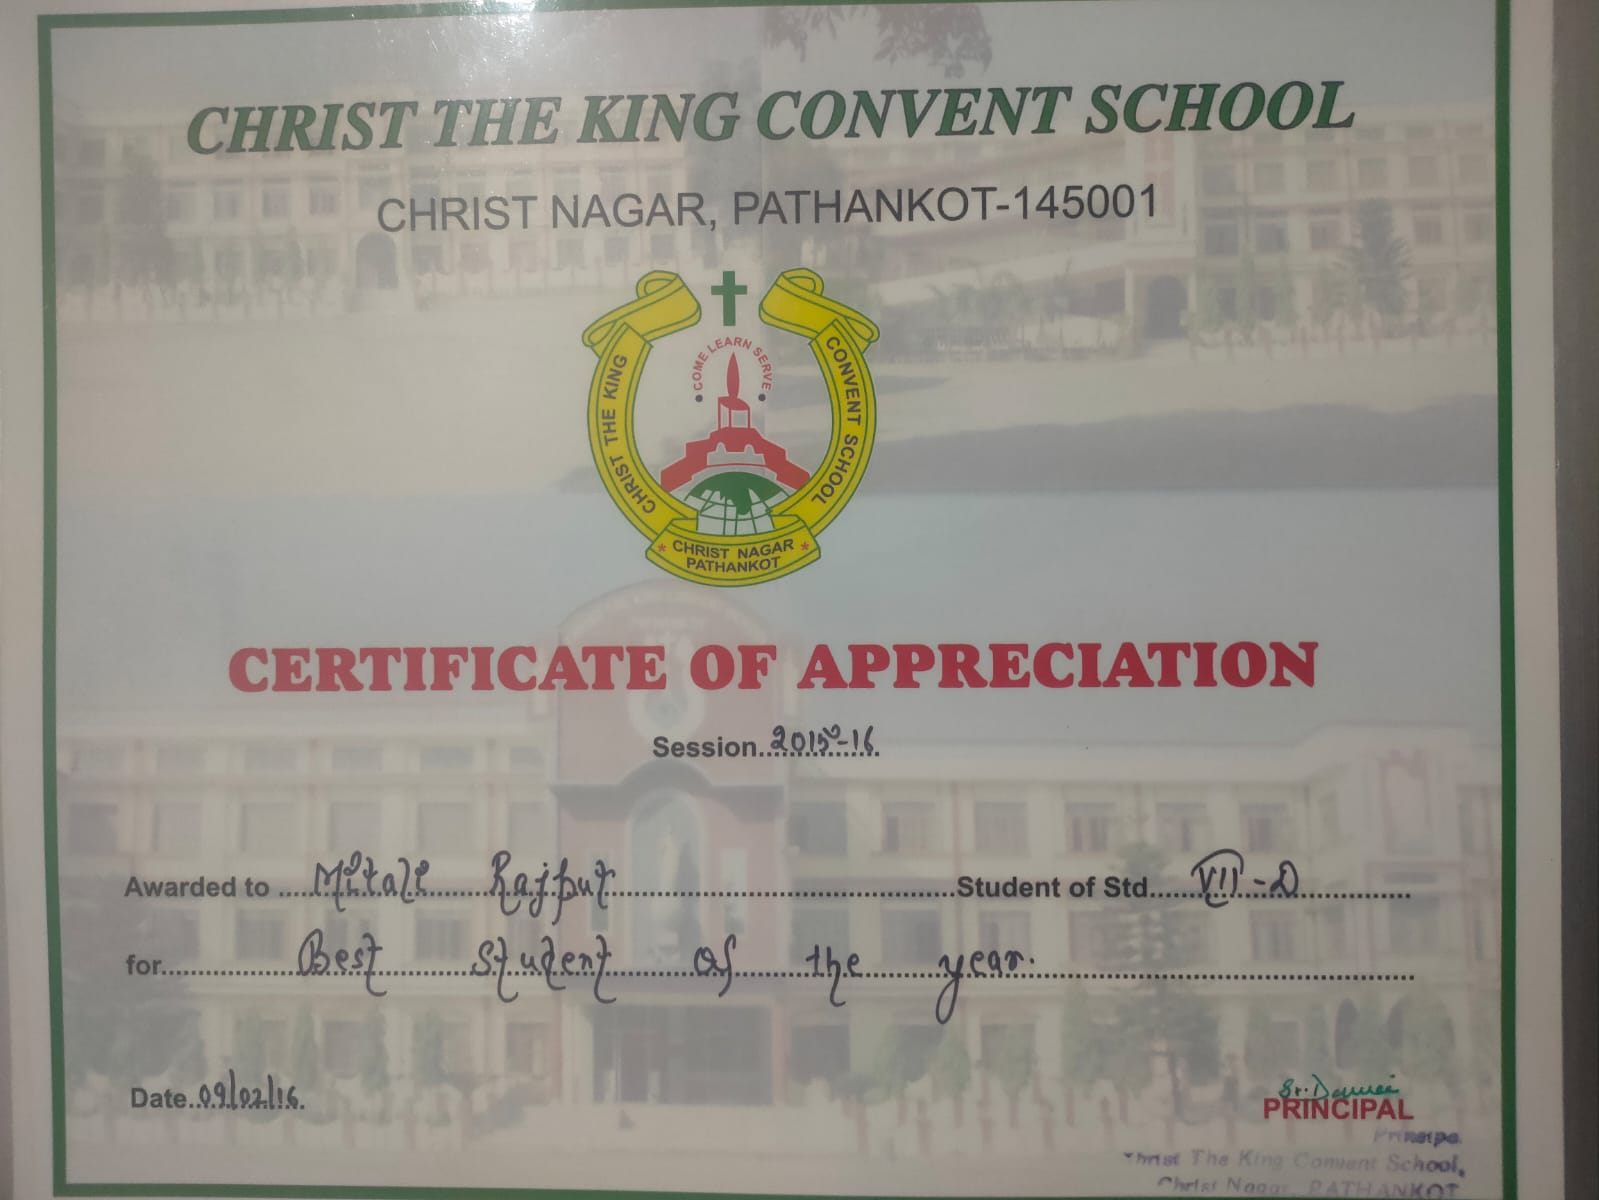 CHRIST THE KING CONVENT SCHOOL
CHRIST NAGAR, PATHANKOT-145001
COME LEARN SERVE
CHRIST THE KING CONVENT SCHOOL
CHRIST NAGAR
PATHANKOT
CERTIFICATE OF APPRECIATION
Session..2015-16.
Awarded to ....Mitali Rajput....Student of Std....VII-D....
for....Best student of the year.
Date..09/02/16.
Sr.
PRINCIPAL
Principa
Christ The King Convent School,
Christ Nagar, PATHANKOT